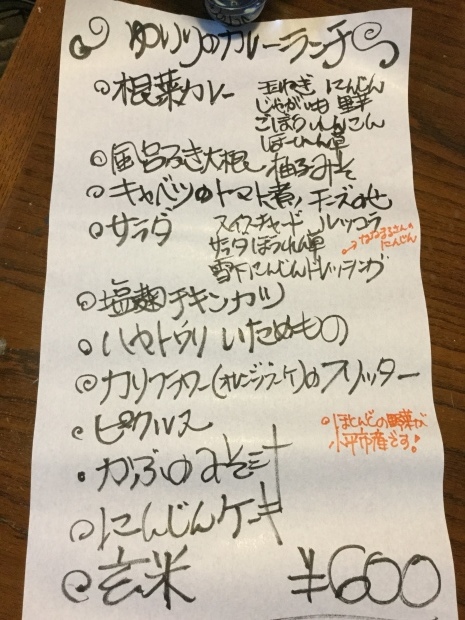 ゆりりのカレーランチ
根菜カレー 玉ねぎ にんじん
じゃがいも 里芋
ごぼう れんこん
ほーれん草
風呂ふき大根 柚子みそ
キャベツのトマト煮 チーズのせ
サラダ スイスチャード ルッコラ
サラダほうれん草
雪下にんじんドレッシング
→ななまるさんの
にんじん
塩麹チキンカツ
ハヤトウリ いためもの
カリフラワー(オレンジブーケ)のフリッター
ピクルス
ほとんどの野菜が
小平市産です!
かぶのみそ汁
にんじんケーキ
玄米 ¥600